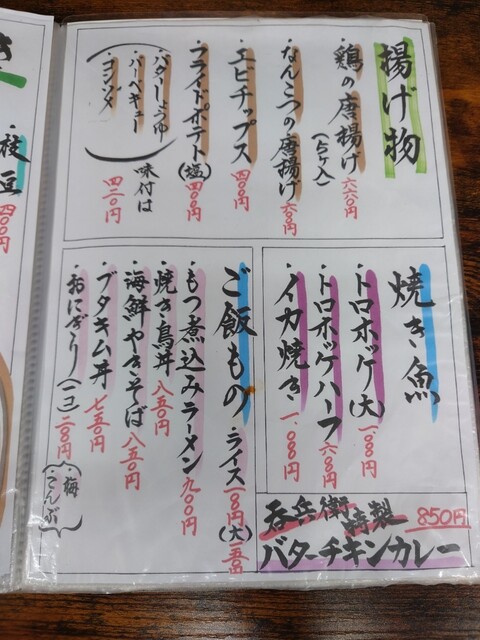 揚げ物
・鶏の唐揚げ(5ケ入)六六〇円
・なんこつの唐揚げ 六〇〇円
・エビチップス 四〇〇円
・フライドポテト(塩)四〇〇円
・バターしょうゆ
・バーベキュー
・コンソメ
味付は
四二〇円
焼き魚
・トロホッケ(大)一、〇〇〇円
・トロホッケハーフ 六〇〇円
・イカ焼き 一、〇〇〇円
ご飯もの
・ライス 一八〇円(大)二五〇円
・もつ煮込みラーメン 九〇〇円
・焼き鳥丼 八五〇円
・海鮮やきそば 八五〇円
・ブタキム丼 七五〇円
・おにぎり(一コ)二〇〇円
梅
こんぶ
呑兵衛特製 850円
バターチキンカレー
枝豆
四〇〇円
き